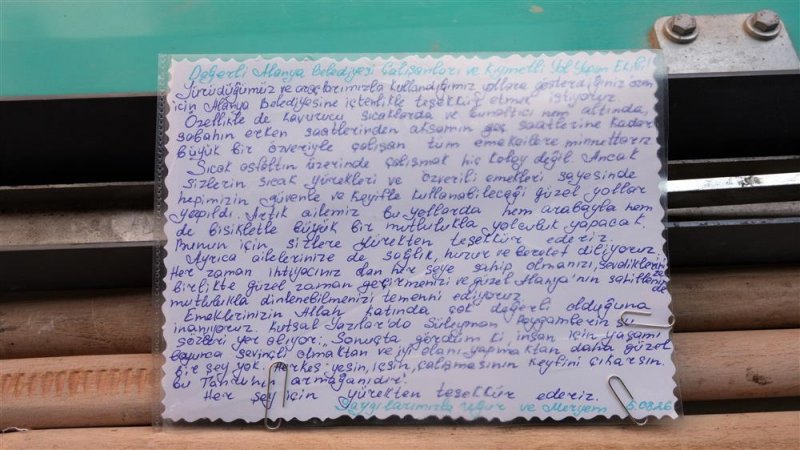 Değerli Alanya Belediyesi Çalışanları ve Kıymetli Yol Yapım Ekibi!
Yürüdüğümüz ve araçlarımızla kullandığımız yollara gösterdiğiniz özen
için Alanya Belediyesine içtenlikle teşekkür etmek istiyoruz.
Özellikle de kavurucu sıcaklarda ve bunaltıcı nem altında,
sabahın erken saatlerinden akşamın geç saatlerine kadar
büyük bir özveriyle çalışan tüm emekçilere minnettarız.
Sıcak asfaltın üzerinde çalışmak hiç kolay değil. Ancak
sizlerin sıcak yürekleri ve özverili emekleri sayesinde
hepimizin güvenle ve keyifle kullanabileceği güzel yollar
yapıldı. Artık ailemiz bu yollarda hem arabayla hem
de bisikletle büyük bir mutlulukla yolculuk yapacak.
Bunun için sizlere yürekten teşekkür ederiz.
Ayrıca ailelerinize de sağlık, huzur ve bereket diliyoruz.
Her zaman ihtiyacınız olan her şeye sahip olmanızı, sevdiklerinizle
birlikte güzel zaman geçirmenizi ve güzel Alanya'nın sahillerinde
mutlulukla dinlenebilmenizi temenni ediyoruz.
Emeklerinizin Allah katında çok değerli olduğuna
inanıyoruz. Kutsal Yazılar'da Süleyman Peygamberin şu
sözleri yer alıyor: „Sonuçta gördüm ki, insan için yaşamı
boyunca sevinçli olmaktan ve iyi olanı yapmaktan daha güzel
bir şey yok. Herkes yesin, içsin, çalışmasının keyfini çıkarsın.
bu Tanrı'nın armağanıdır."
Her şey için yürekten teşekkür ederiz.
Saygılarımızla Uğur ve Meryem 5.08.26